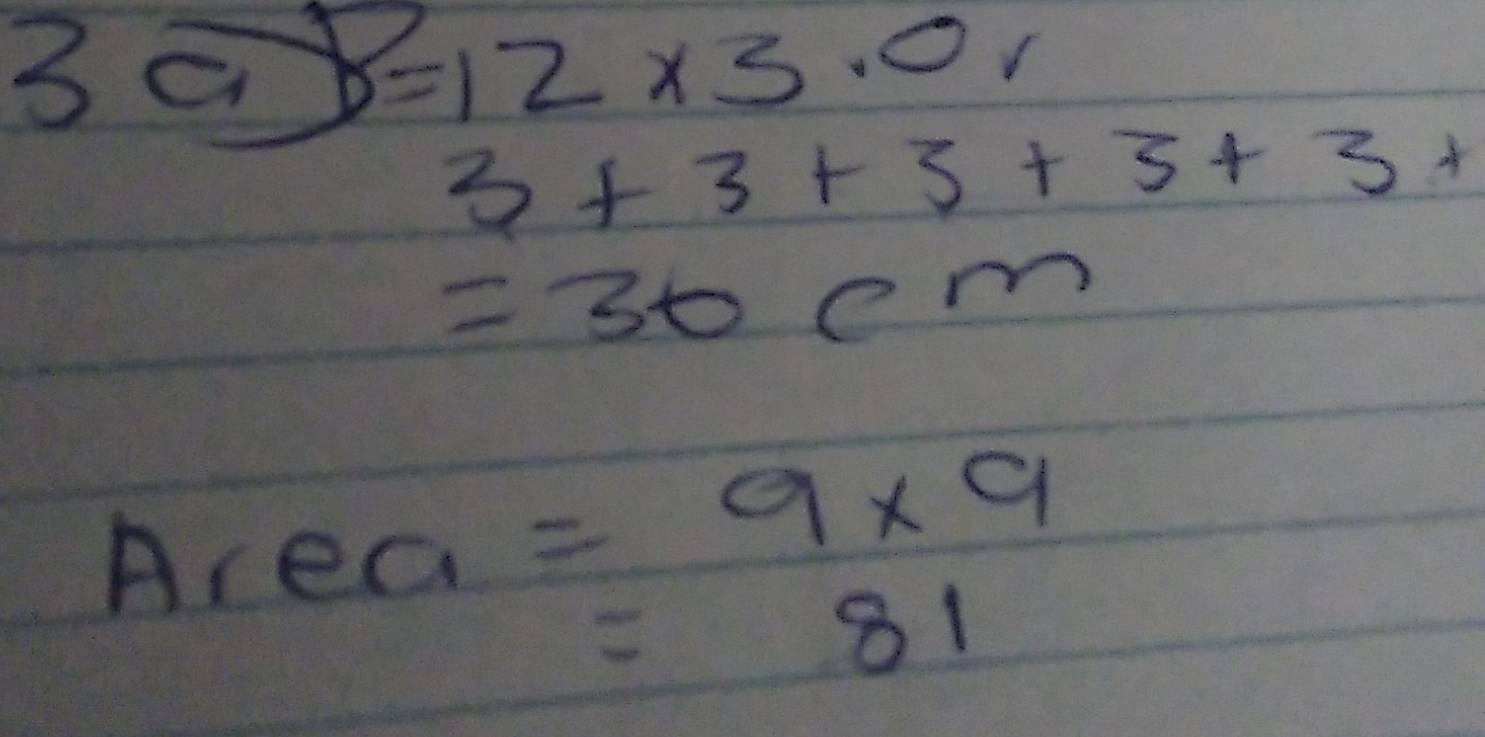 3 a) P = 12 x 3 . Or
3 + 3 + 3 + 3 + 3 +
= 36 cm
Area = 9 x 9
= 81